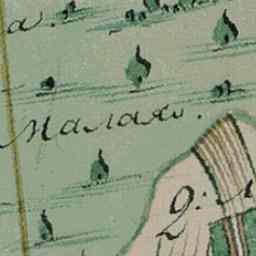 а.
Малая.
2: